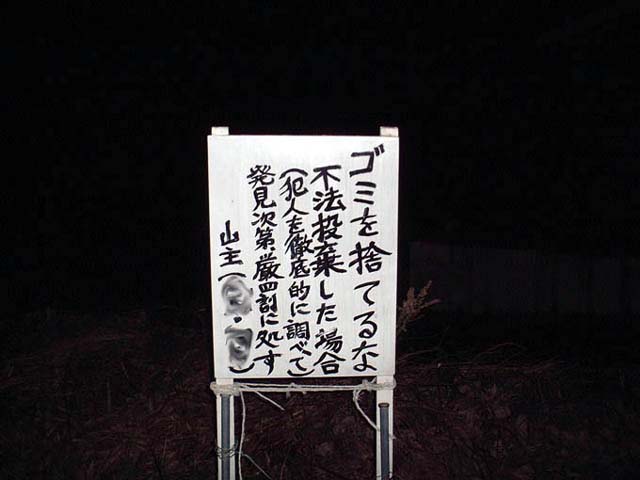 ゴミを捨てるな
不法投棄した場合
(犯人を徹底的に調べて)
発見次第、厳罰に処す
山主(
・
)